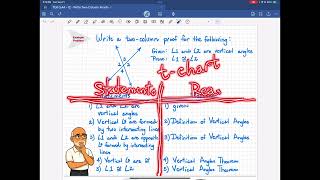 Example Problem
Write a two-column proof for the following:
Given: L1 and L2 are vertical angles
Prove: L1 ≅ L2
3
1
2
4
t-chart
Statements
Reas
1) L1 and L2 are vertical angles
1) given
2) Vertical are formed by two intersecting lines
2) Definition of Vertical Angles
3) L1 and L2 are opposite formed by intersecting lines
3) Definition of Vertical Angles
4) Vertical are ≅
4) Vertical Angles Theorem
5) L1 ≅ L2
5) Vertical Angles Theorem